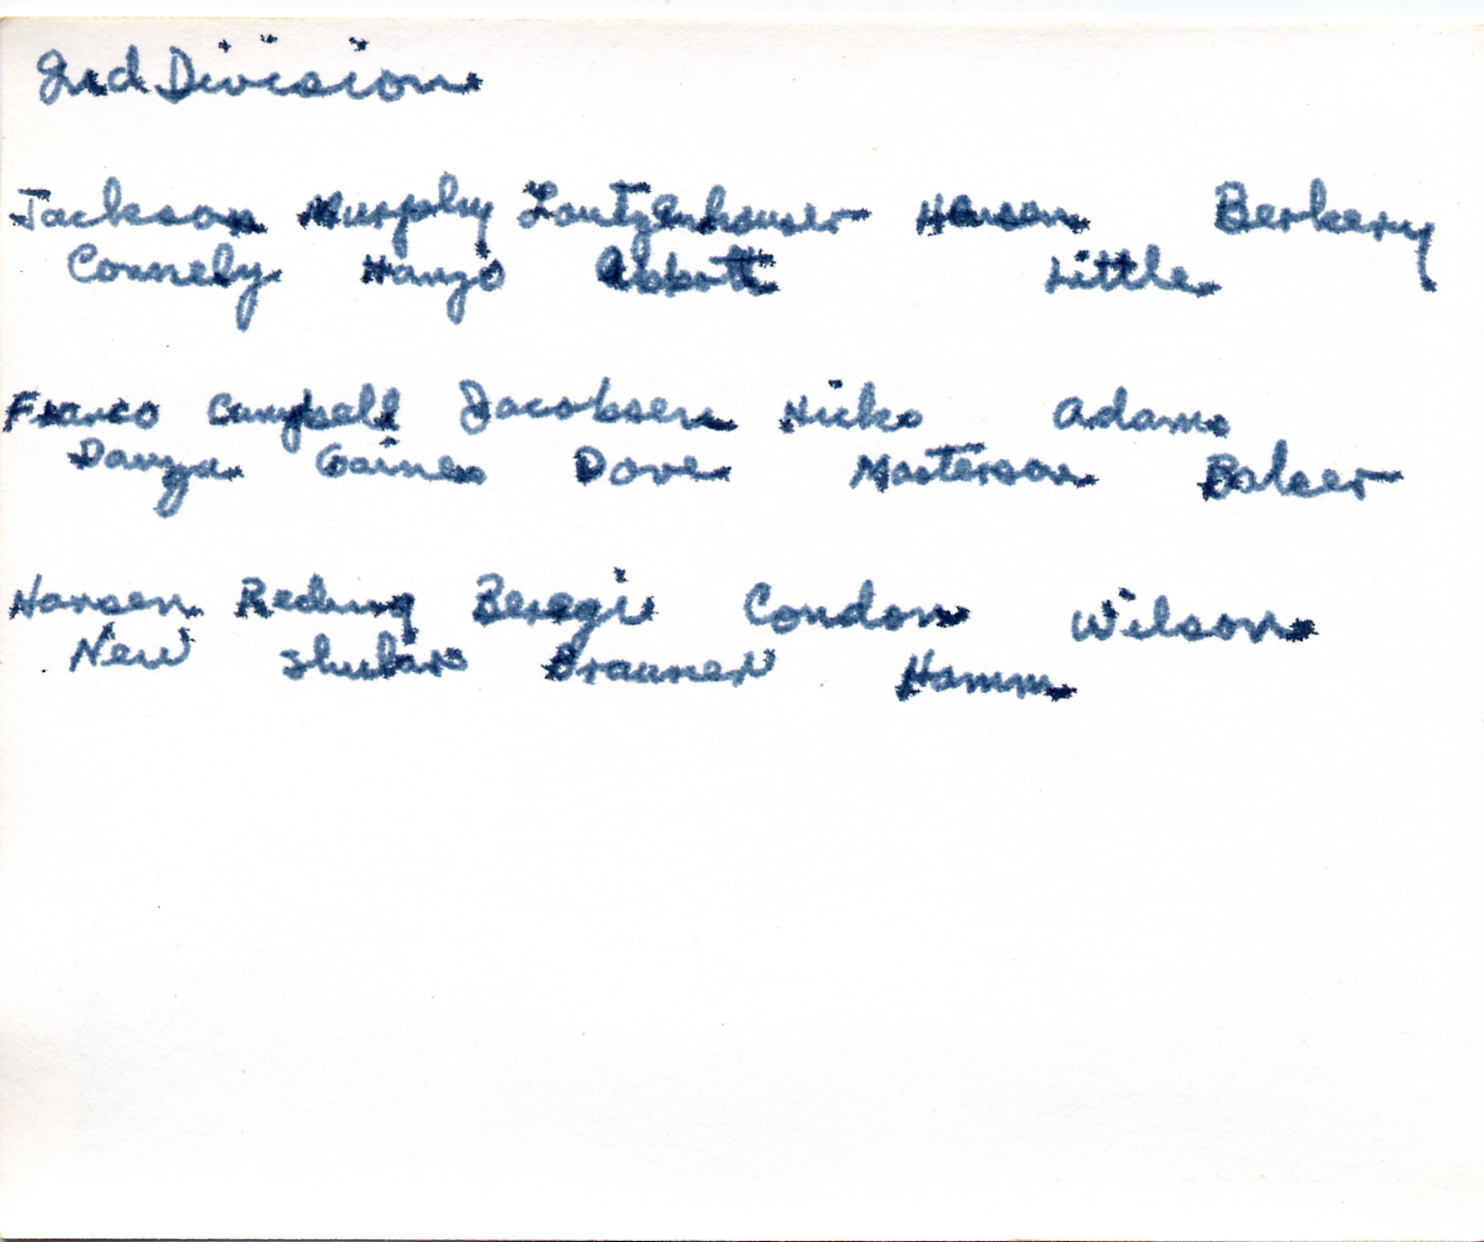 2nd Division
Jackson Murphy Lautzenhauser Hansen Berkery
Connely Hanzo Abbott Little
Franco Campbell Jacobsen Hicks Adams
Gaines Dove Masterson Balser
Hansen Beregi Condon Wilson
New Shubars Brauner Hamm